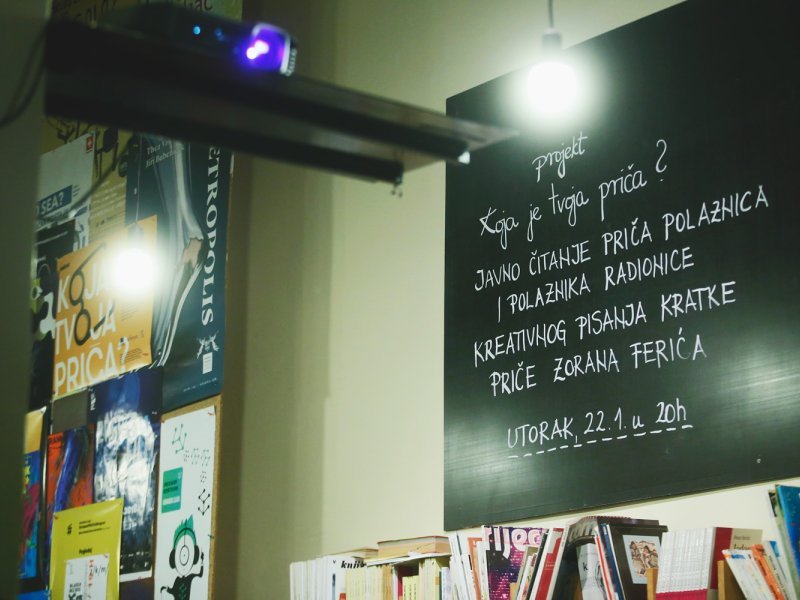 projekt
Koja je tvoja priča?
JAVNO ČITANJE PRIČA POLAZNICA
I POLAZNIKA RADIONICE
KREATIVNOG PISANJA KRATKE
PRIČE ZORANA FERIĆA
UTORAK, 22.1. u 20h
SEA?
METROPOLIS
KOJA
TVOJA
PRIČA?
Pogledaj
riječ